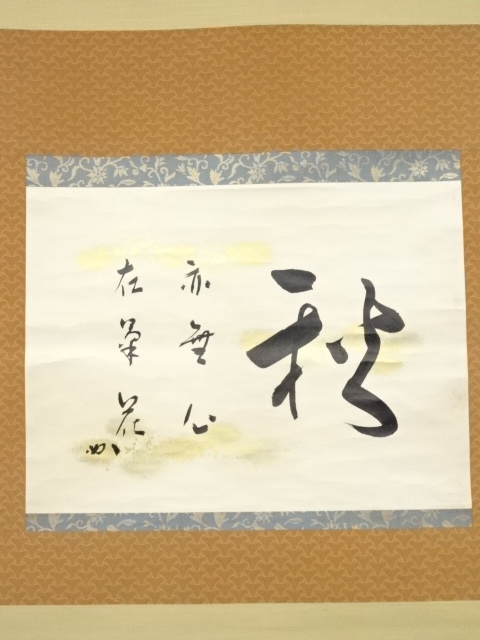 秋
亦無心
在菊花